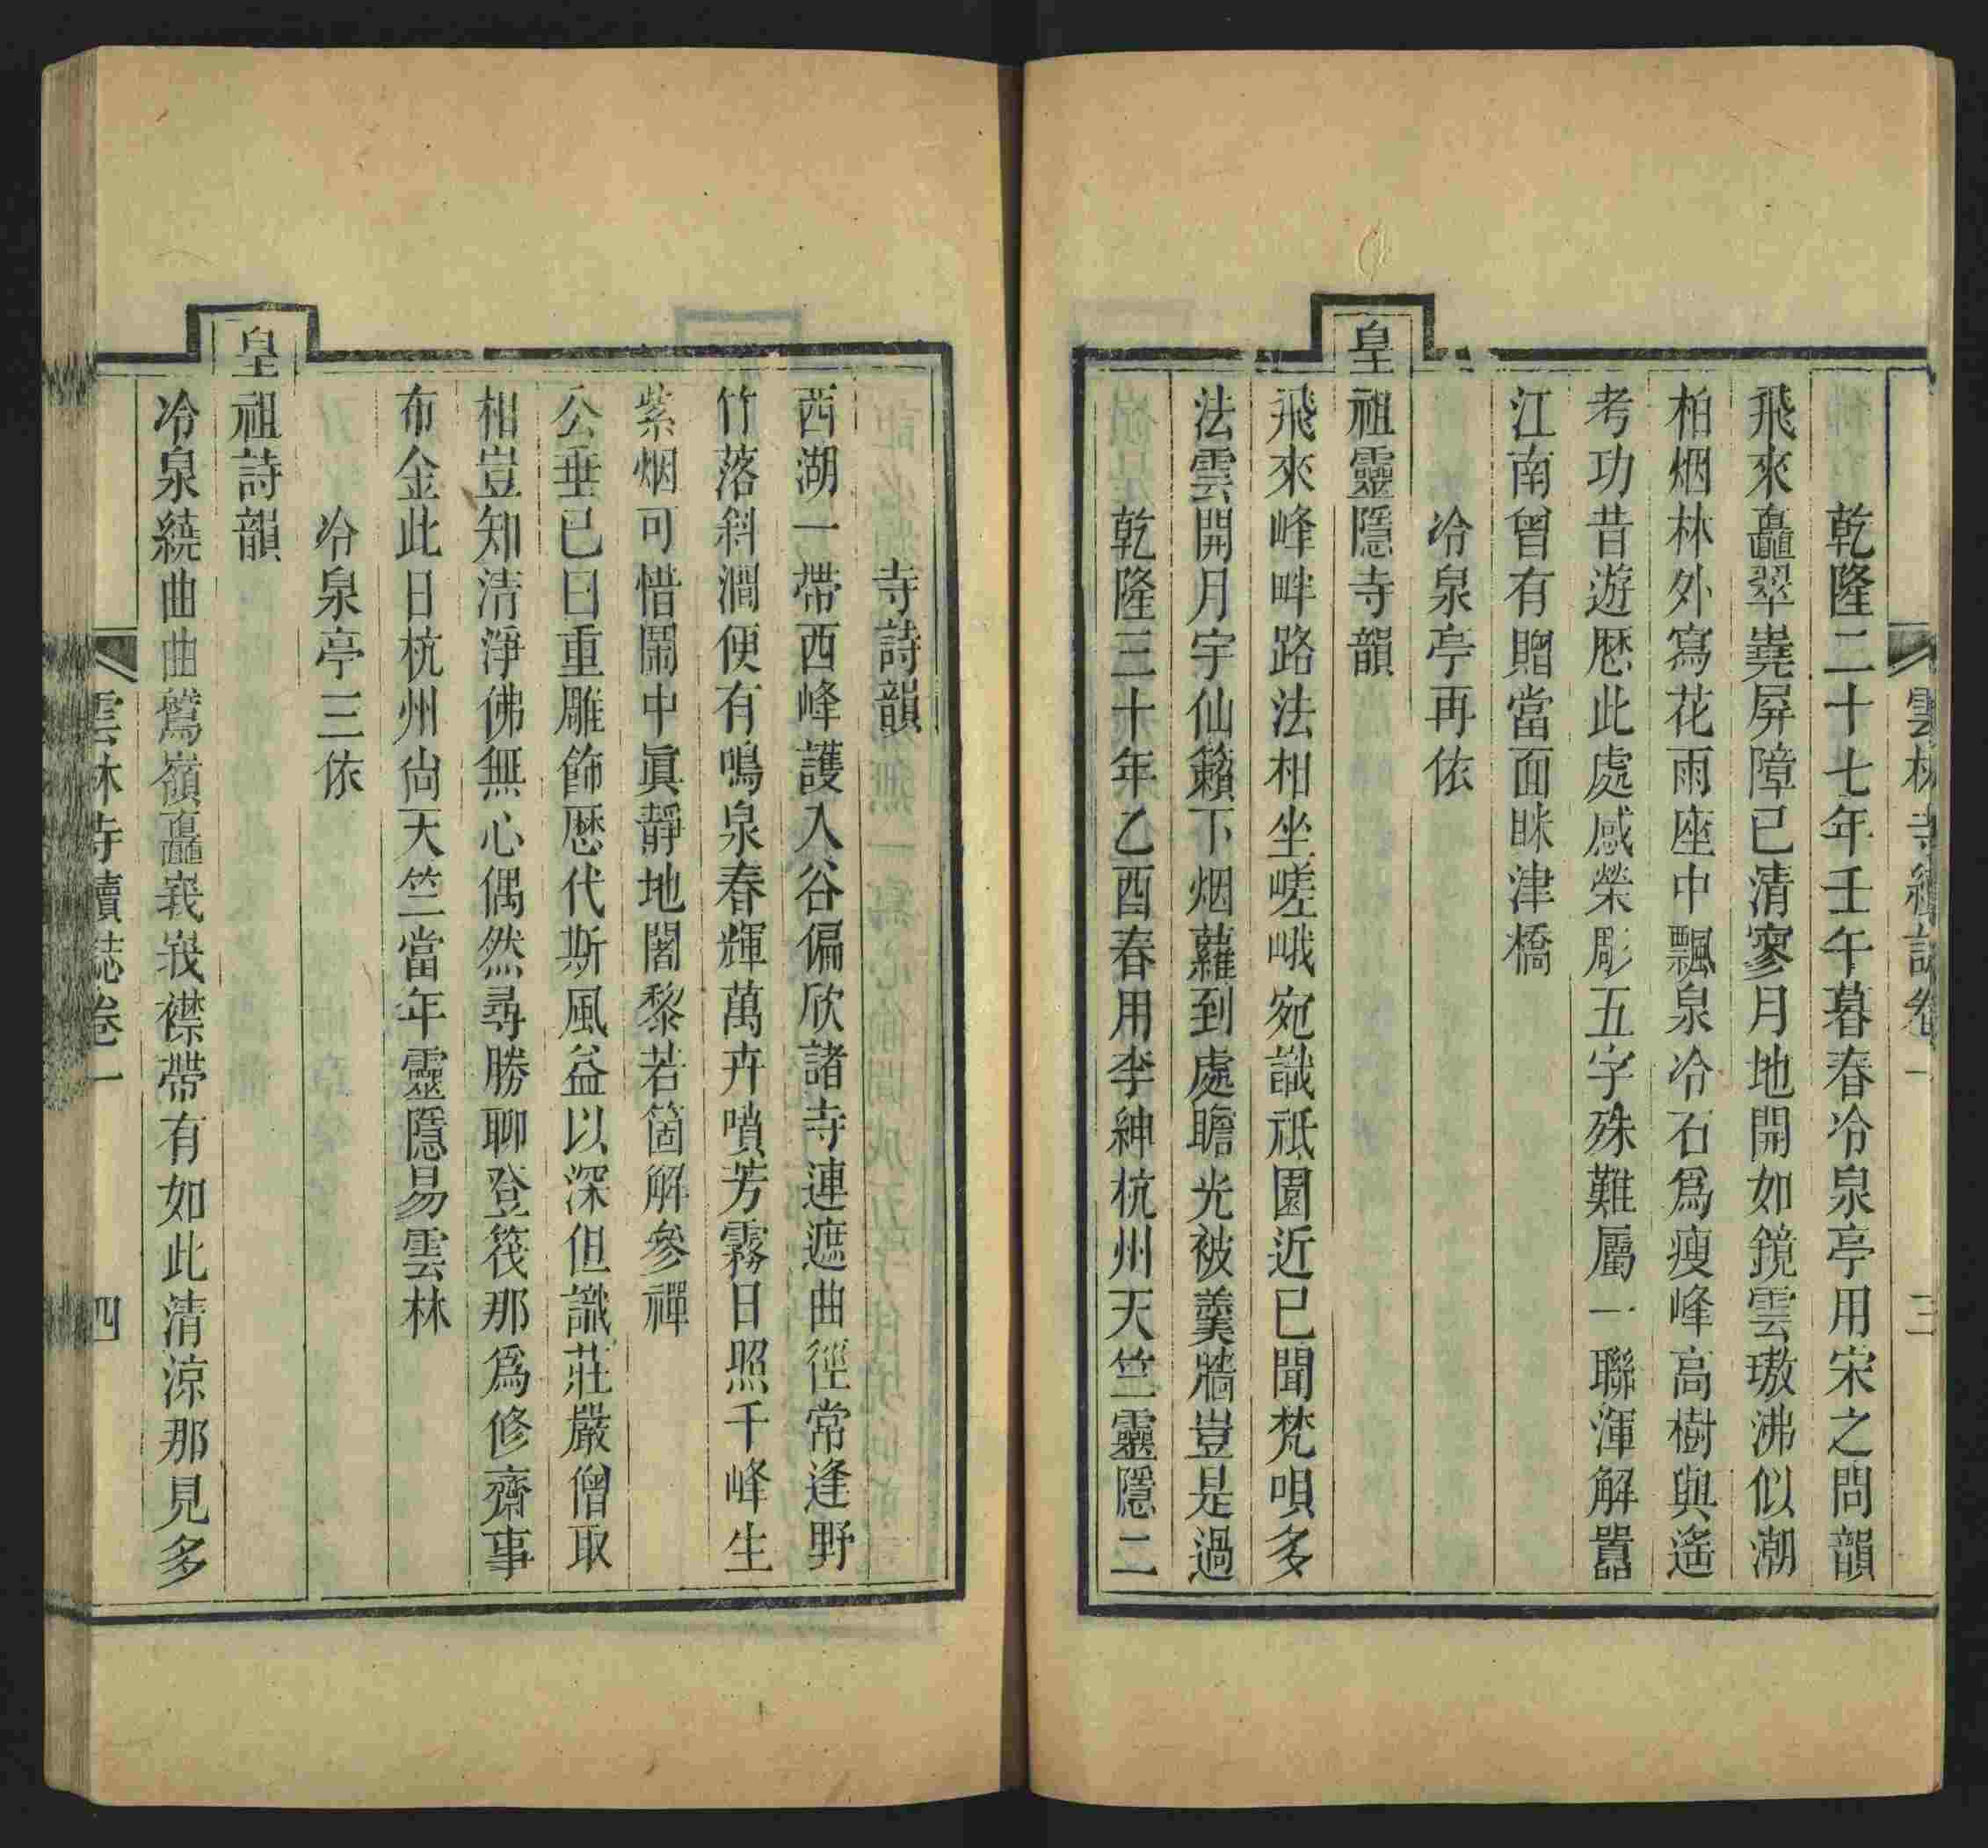 雲林寺續誌卷一 三
乾隆二十七年壬午暮春冷泉亭用宋之問韻
飛來矗翠嶤屏障已清寥月地開如鏡雲璈沸似潮
柏烟林外寫花雨座中飄泉冷石爲瘦峰高樹與遙
考功昔遊歷此處感榮彫五字殊難屬一聯渾解囂
江南曾有贈當面眯津橋
冷泉亭再依
皇祖靈隱寺韻
飛來峰畔路法相坐嵯峨宛識祇園近已聞梵唄多
法雲開月宇仙籟下烟蘿到處瞻光被羹牆豈是過
乾隆三十年乙酉春用李紳杭州天竺靈隱二
寺詩韻
西湖一帶西峰護入谷偏欣諸寺連遮曲徑常逢野
竹落斜澗便有鳴泉春輝萬卉噴芳霧日照千峰生
紫烟可惜鬧中眞靜地闍黎若箇解參禪
公垂已曰重雕飾歷代斯風益以深但識莊嚴僧取
相豈知清淨佛無心偶然尋勝聊登筏那爲修齋事
布金此日杭州尙天竺當年靈隱易雲林
冷泉亭三依
皇祖詩韻
冷泉繞曲曲鷲嶺矗峩峩襟帶有如此清涼那見多
雲林寺續誌卷一 四